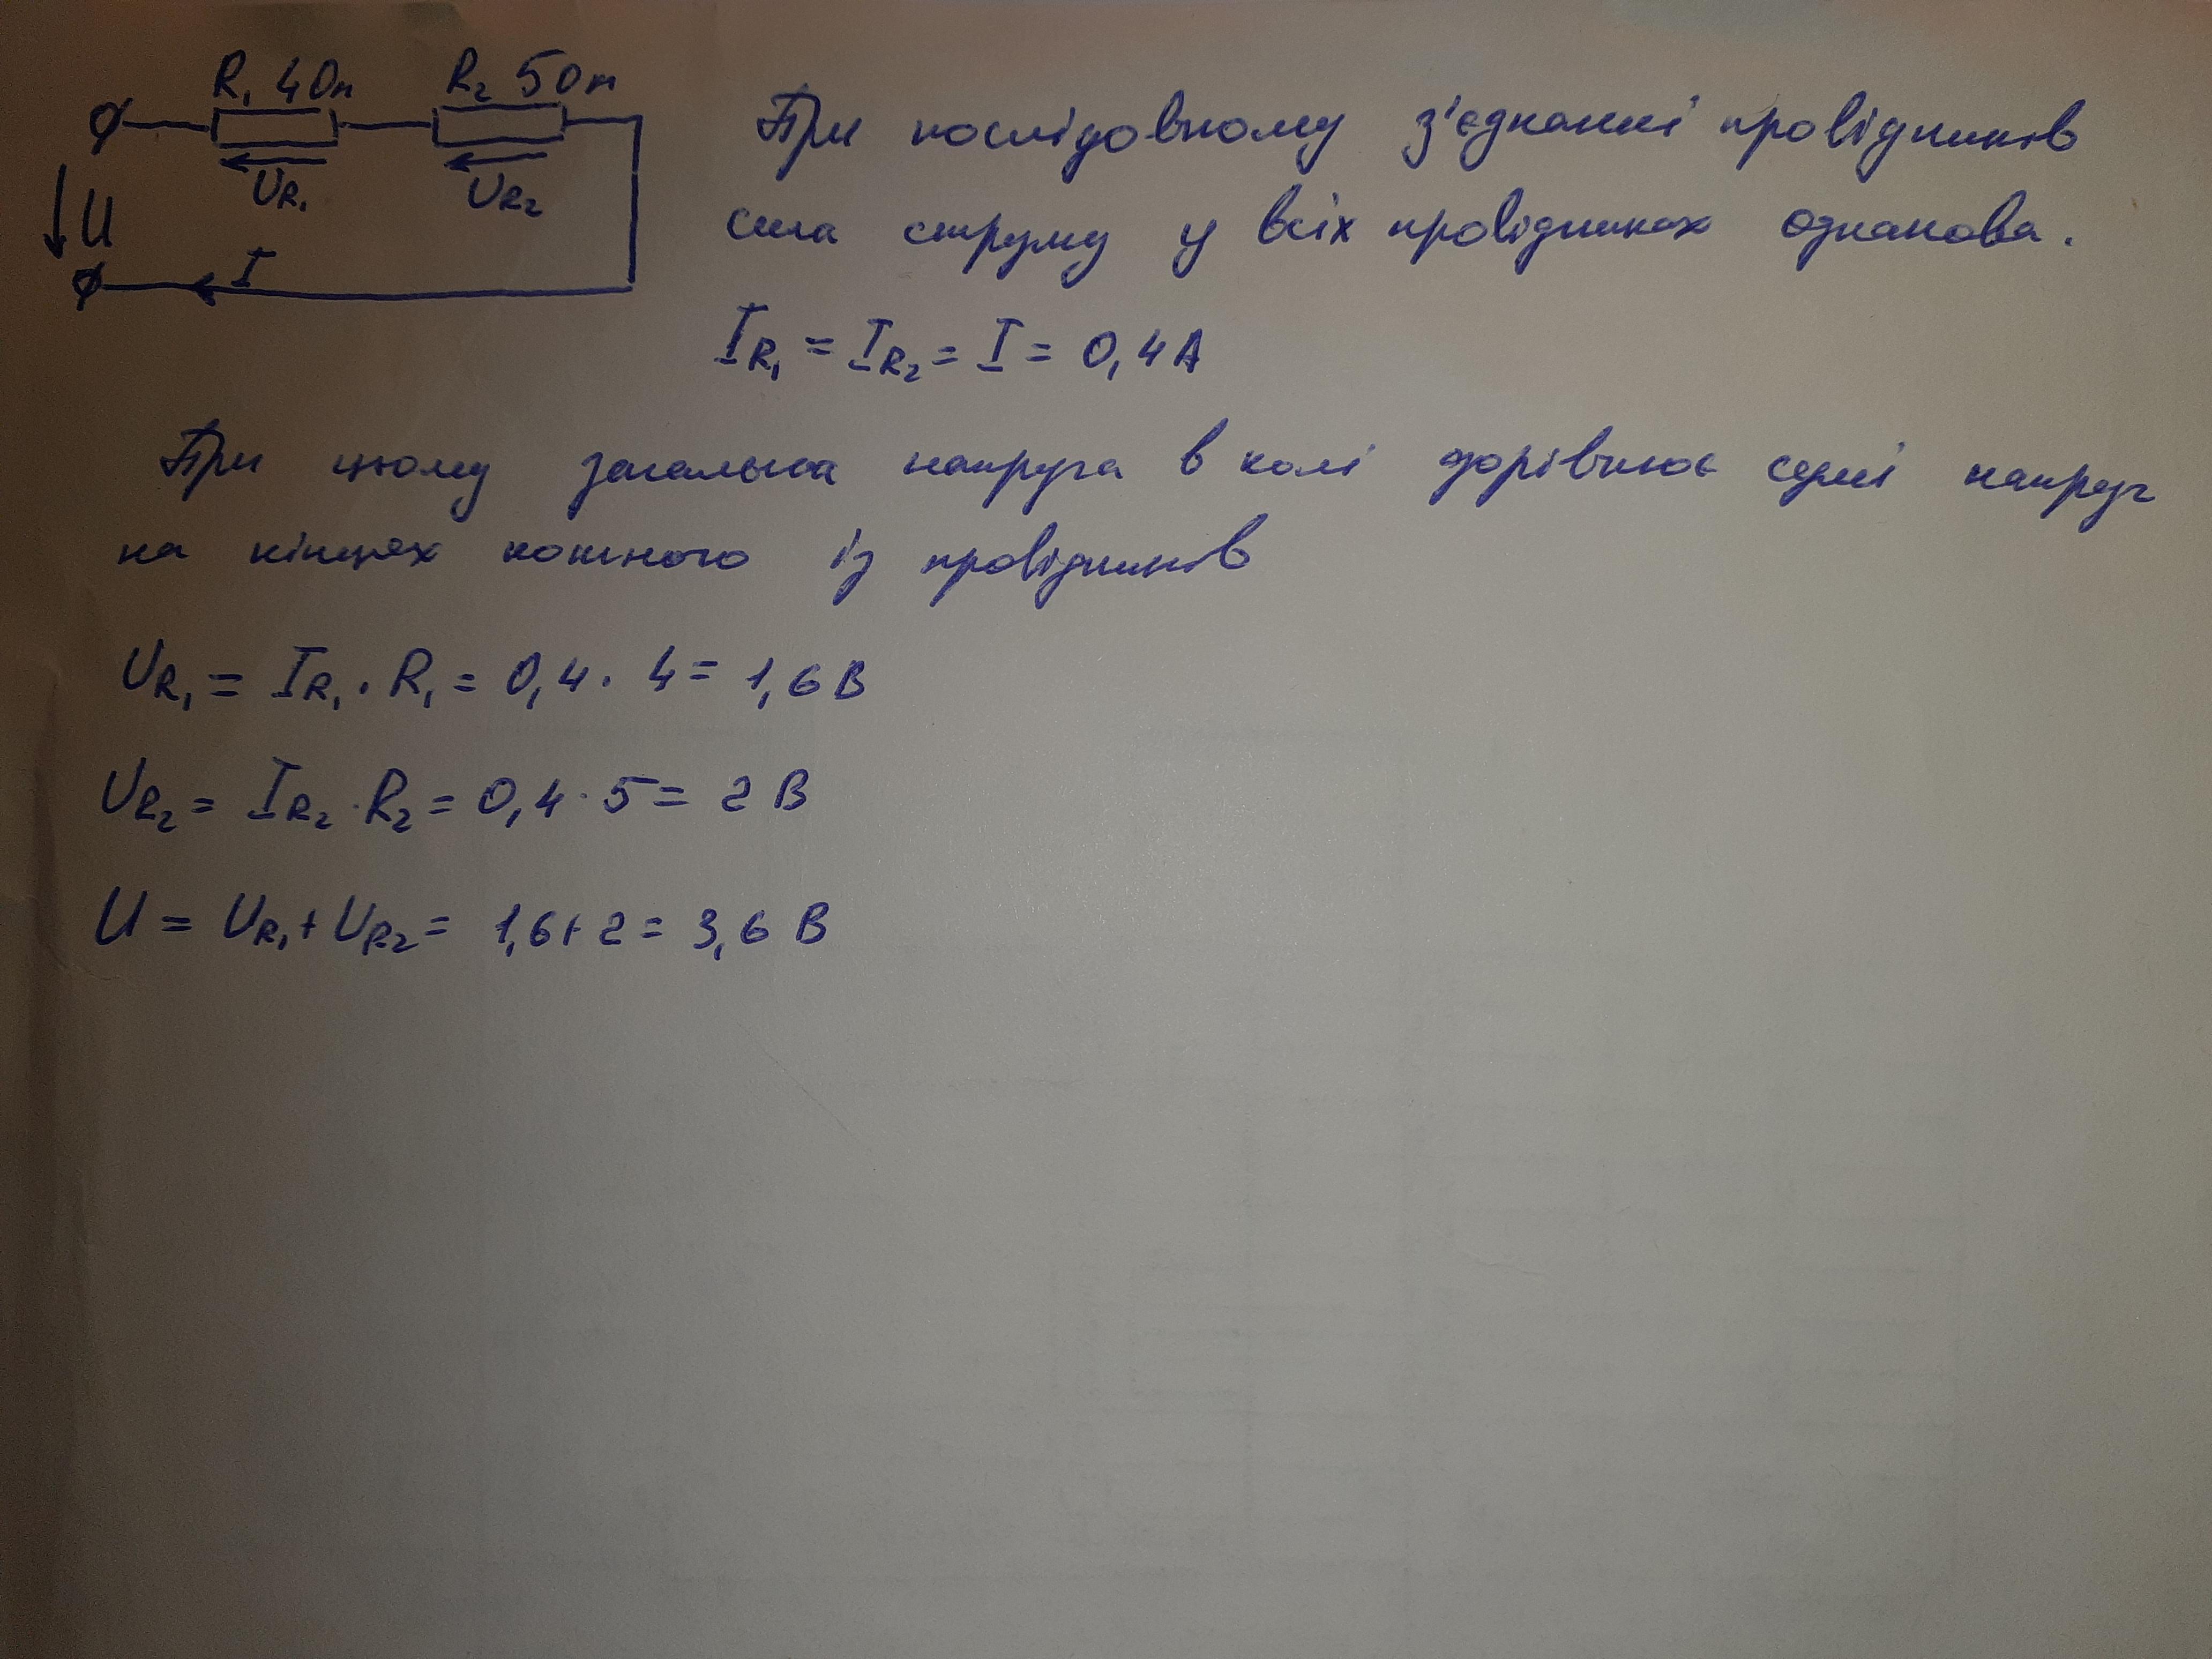 R₁ 4Ом R₂ 5Ом
UR₁ UR₂
U
I
При послідовному з'єднанні провідників
сила струму у всіх провідниках однакова.
IR₁ = IR₂ = I = 0,4 А
При цьому загальна напруга в колі дорівнює сумі напруг
на кінцях кожного із провідників
UR₁ = IR₁ · R₁ = 0,4 · 4 = 1,6 В
UR₂ = IR₂ · R₂ = 0,4 · 5 = 2 В
U = UR₁ + UR₂ = 1,6 + 2 = 3,6 В